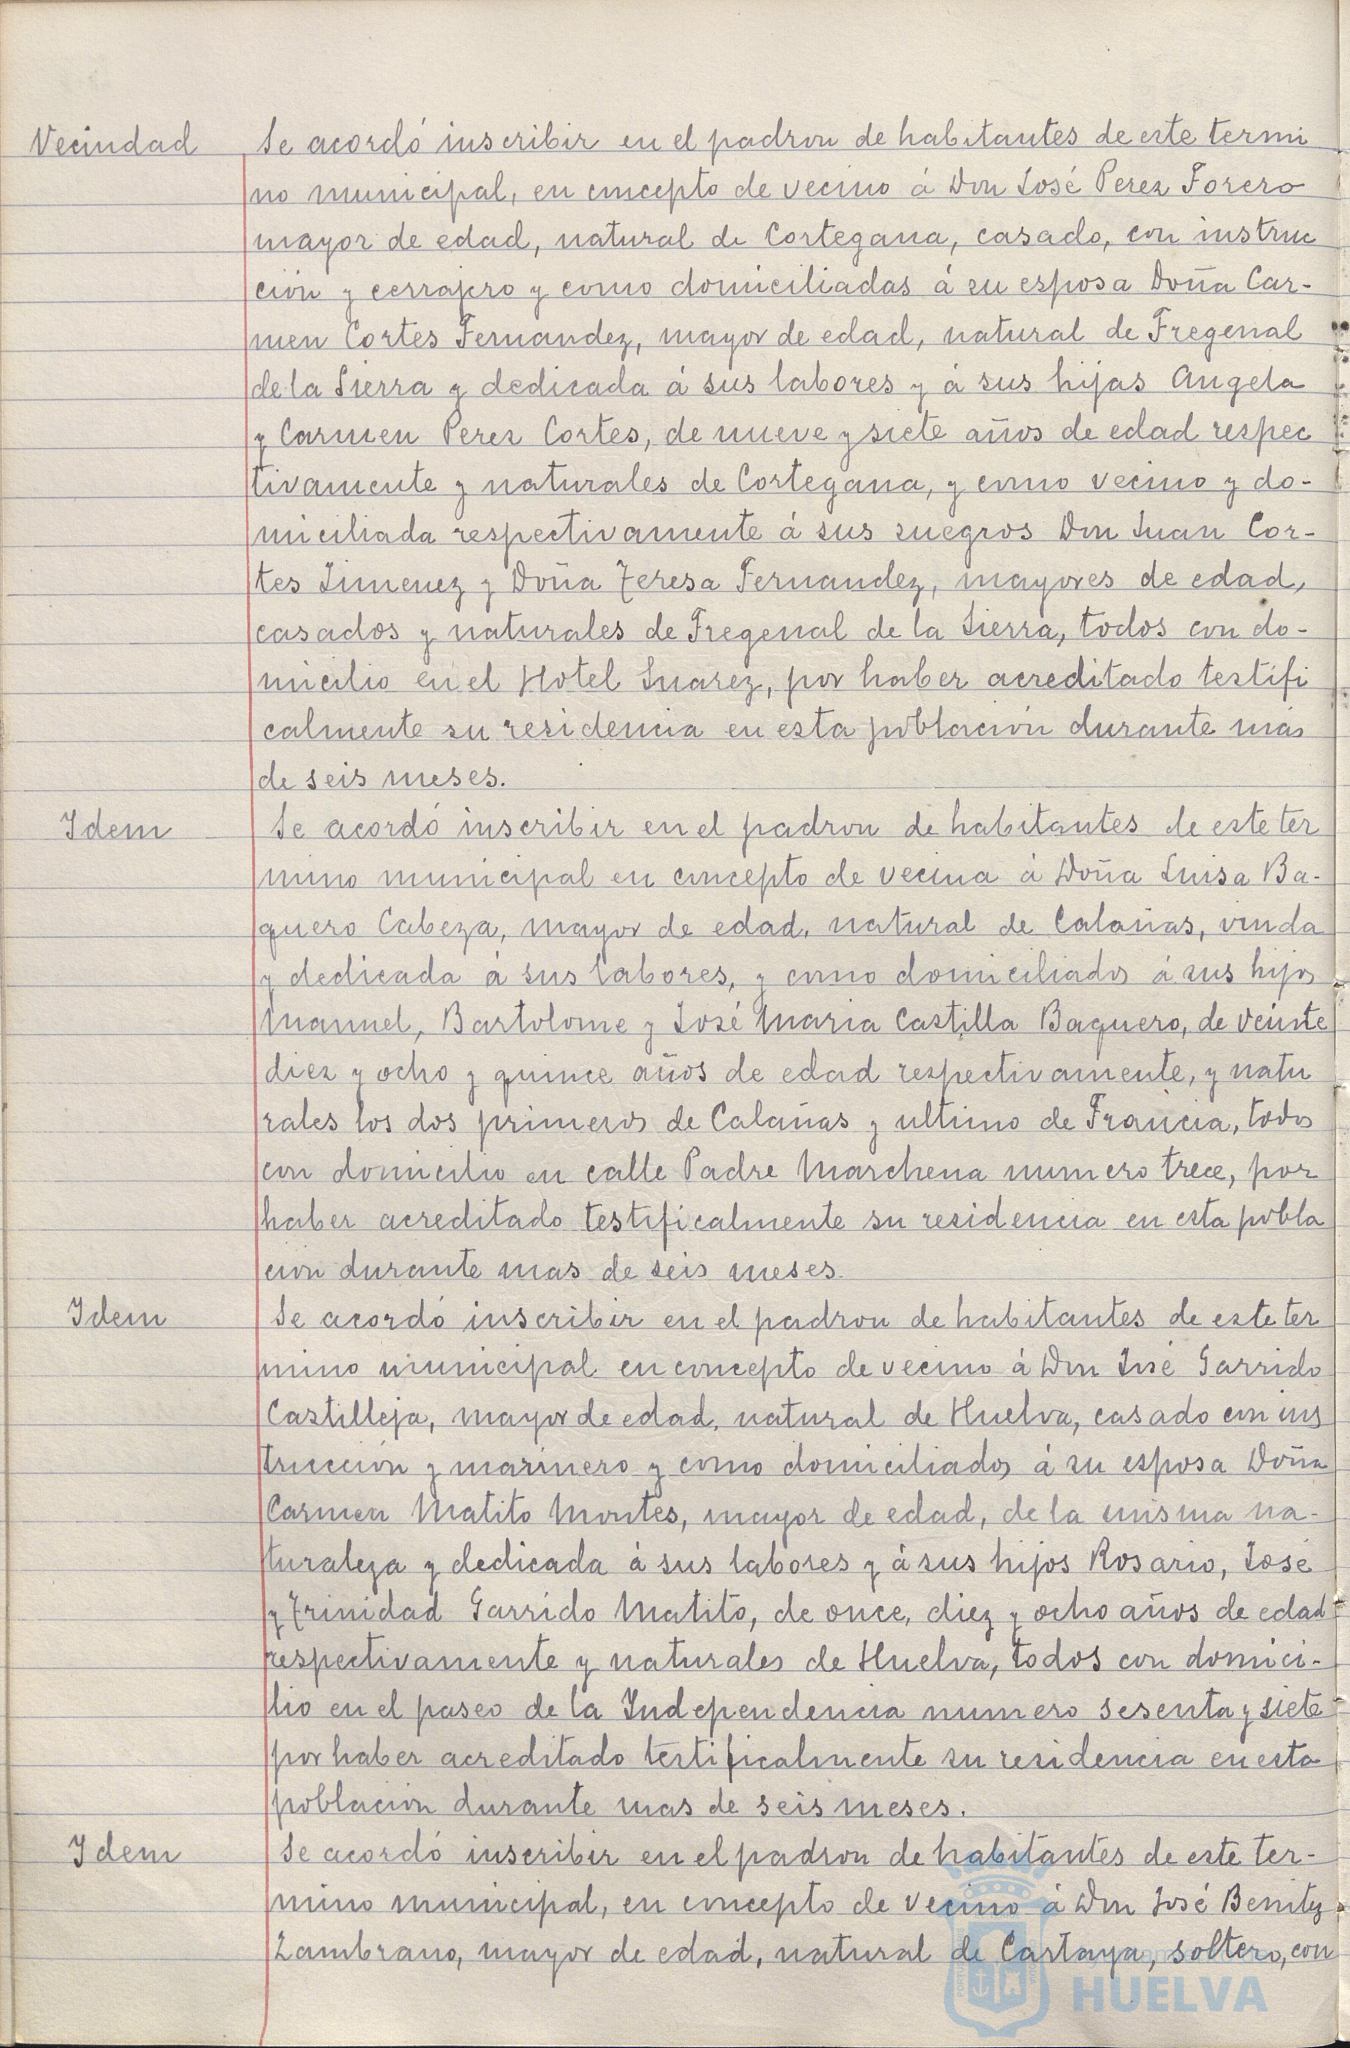 Vecindad Se acordó inscribir en el padron de habitantes de este termi
no municipal, en concepto de vecino á Don José Perez Forero
mayor de edad, natural de Cortegana, casado, con instruc
ción y cerrajero y como domiciliadas á su esposa Doña Car-
men Cortes Fernandez, mayor de edad, natural de Fregenal
de la Sierra y dedicada á sus labores y á sus hijas Angela
y Carmen Perez Cortes, de nueve y siete años de edad respec
tivamente y naturales de Cortegana, y como vecino y do-
miciliada respectivamente á sus suegros Don Juan Cor-
tes Jimenez y Doña Teresa Fernandez, mayores de edad,
casados y naturales de Fregenal de la Sierra, todos con do-
micilio en el Hotel Suarez, por haber acreditado testifi
calmente su residencia en esta población durante más
de seis meses.
Idem Se acordó inscribir en el padron de habitantes de este ter
mino municipal en concepto de vecina á Doña Luisa Ba-
quero Cabeza, mayor de edad, natural de Calañas, viuda
y dedicada á sus labores, y como domiciliados á sus hijos
Manuel, Bartolome y José Maria Castilla Baquero, de veinte
diez y ocho y quince años de edad respectivamente, y natu
rales los dos primeros de Calañas y ultimo de Francia, todos
con domicilio en calle Padre Marchena numero trece, por
haber acreditado testificalmente su residencia en esta pobla
ción durante mas de seis meses.
Idem Se acordó inscribir en el padron de habitantes de este ter
mino municipal en concepto de vecino á Don José Garrido
Castilleja, mayor de edad, natural de Huelva, casado con ins
trucción y marinero y como domiciliados á su esposa Doña
Carmen Matito Montes, mayor de edad, de la misma na-
turaleza y dedicada á sus labores y á sus hijos Rosario, José
y Trinidad Garrido Matito, de once, diez y ocho años de edad
respectivamente y naturales de Huelva, todos con domici-
lio en el paseo de la Independencia numero sesenta y siete
por haber acreditado testificalmente su residencia en esta
población durante mas de seis meses.
Idem Se acordó inscribir en el padron de habitantes de este ter-
mino municipal, en concepto de vecino á Don José Benitez
Zambrano, mayor de edad, natural de Cartaya, soltero, con
HUELVA